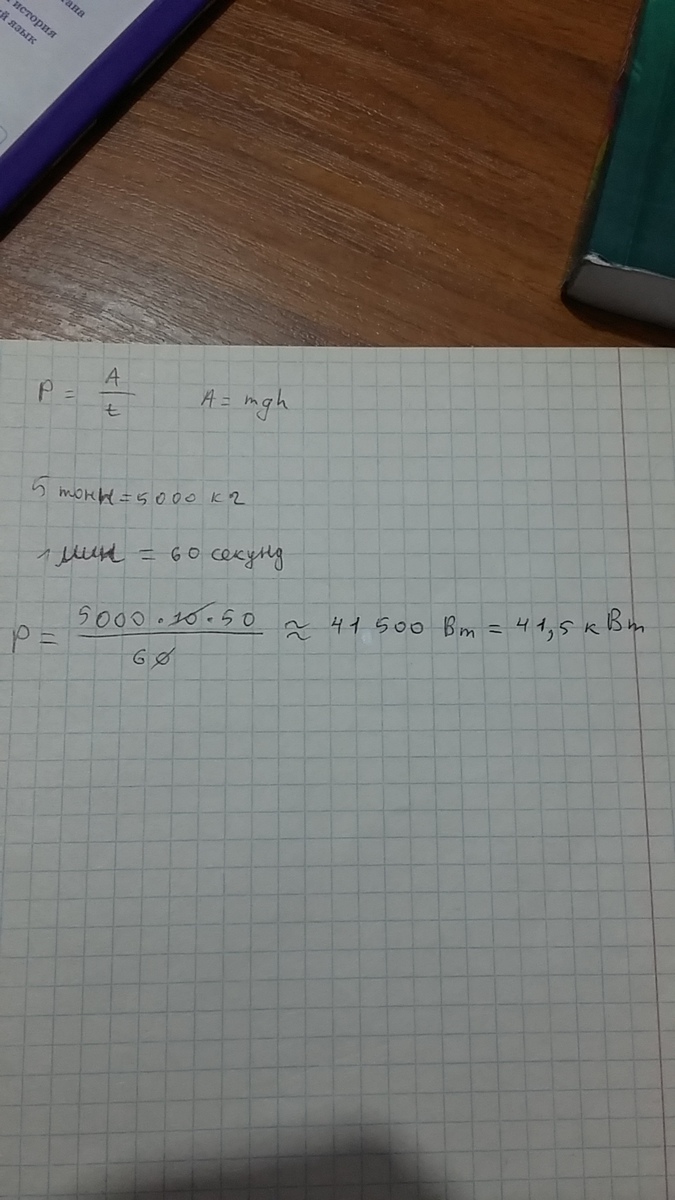 тана
история
й язык
P = A/t A = mgh
5 тонн = 5000 кг
1 мин = 60 секунд
P = 5000 · 10 · 50 / 60 ≈ 41 500 Вт = 41,5 кВт